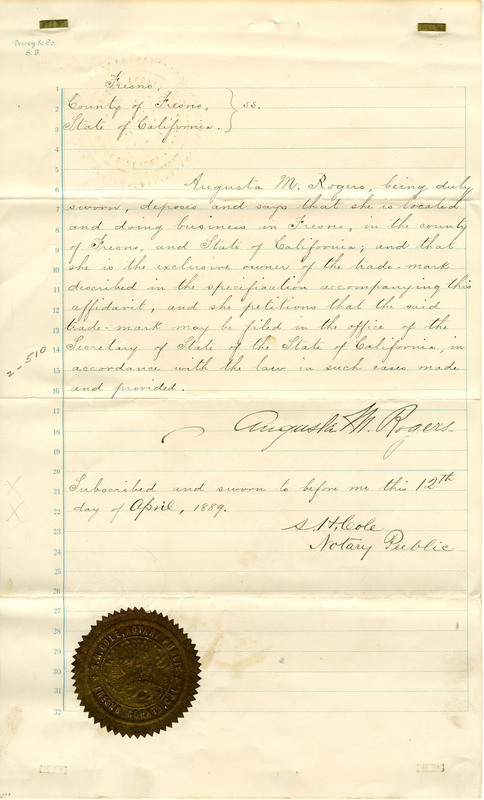 Dewey & Co.
S. F.
1
2
3
4
5
6
7
8
9
10
11
12
13
14
15
16
17
18
19
20
21
22
23
24
25
26
27
28
29
30
31
32
Fresno,
County of Fresno, } ss.
State of California.
Augusta M. Rogers, being duly
sworn, deposes and says that she is located
and doing business in Fresno, in the county
of Fresno, and State of California; and that
she is the exclusive owner of the trade-mark
described in the specification accompanying this
affidavit, and she petitions that the said
trade-mark may be filed in the office of the
Secretary of State of the State of California, in
accordance with the law in such cases made
and provided.
2-510
Augusta M. Rogers
Subscribed and sworn to before me this 12th
day of April, 1889.
S. H. Cole
Notary Public
COLE, NOTARY PUBLIC
FRESNO COUNTY, CAL.